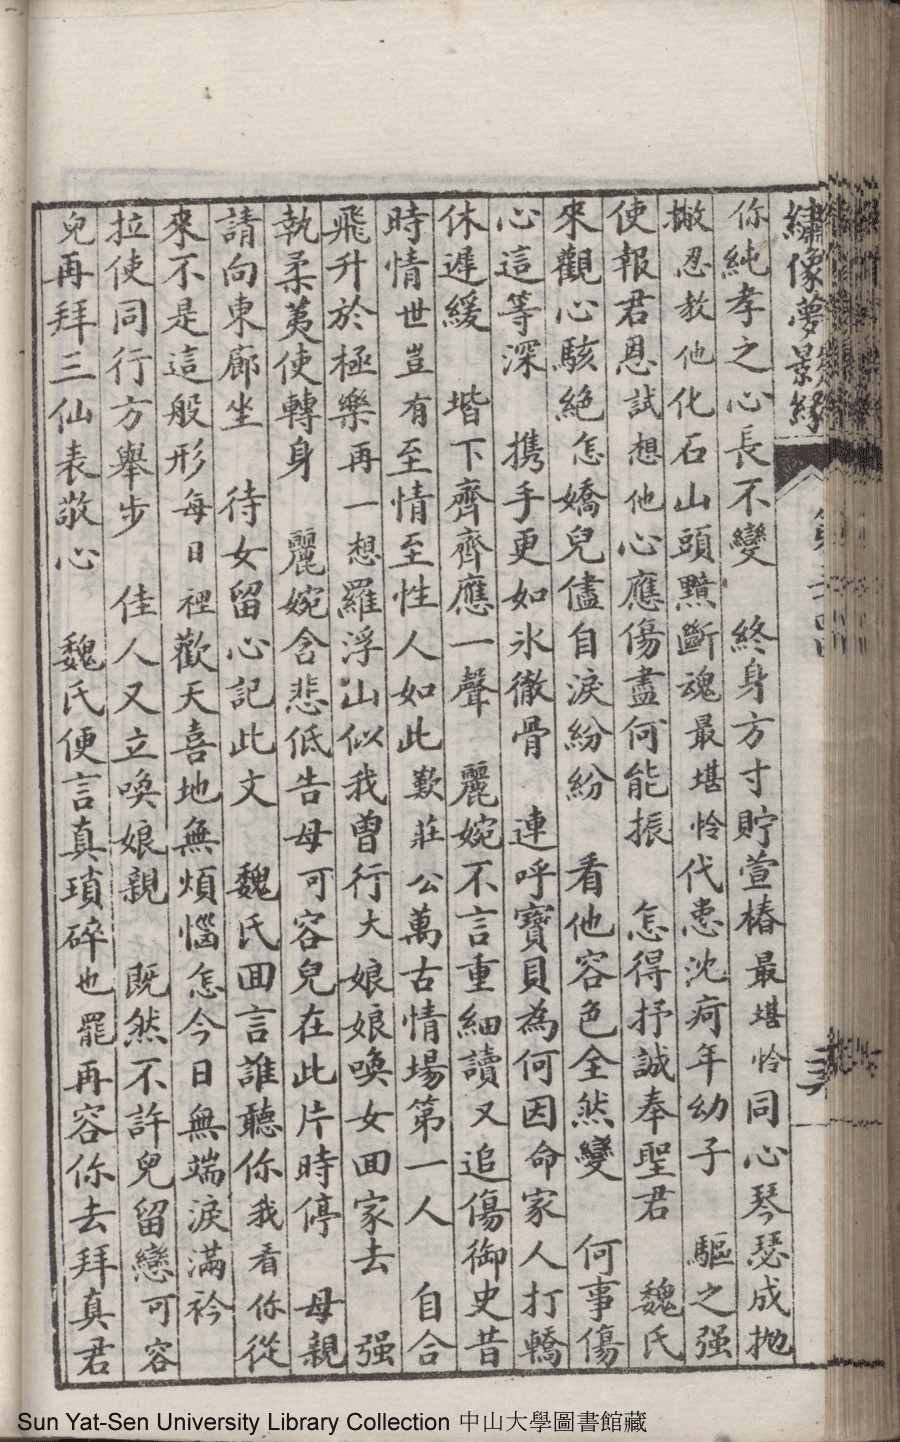 繡像夢景緣
你純孝之心長不變　終身方寸貯萱椿最堪怜同心琴瑟成抛
撇忍教他化石山頭黯斷魂最堪怜代患沈疴年幼子　驅之强
使報君恩試想他心應傷盡何能振　怎得抒誠奉聖君　魏氏
來觀心駭絶怎嬌兒儘自淚紛紛　看他容色全然變　何事傷
心這等深　携手更如氷徹骨　連呼寶貝為何因命家人打轎
休遲緩　堦下齊齊應一聲　麗婉不言重細讀又追傷御史昔
時情世豈有至情至性人如此歎莊公萬古情塲第一人　自合
飛升於極樂再一想羅浮山似我曾行大娘娘喚女回家去　强
執柔荑使轉身　麗婉含悲低告母可容兒在此片時停　母親
請向東廊坐　待女留心記此文　魏氏回言誰聽你我看你從
來不是這般形每日裡歡天喜地無煩惱怎今日無端淚滿衿
拉使同行方舉步　佳人又立喚娘親　既然不許兒留戀可容
兒再拜三仙表敬心　魏氏便言真瑣碎也罷再容你去拜真君
Sun Yat-Sen University Library Collection 中山大學圖書館藏